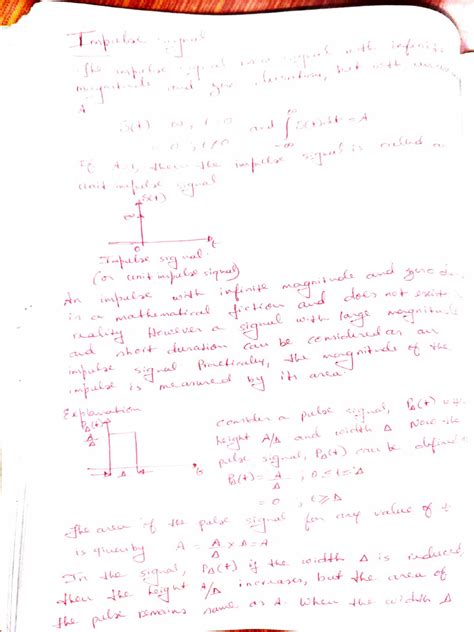 Impulse signal
The impulse signal is a signal with infinite
magnitude and zero duration, but with an area
A
δ(t) = ∞, t=0 and ∫ δ(t)dt = A
∞
= 0, t≠0
-∞
If A=1, then the impulse signal is called a
unit impulse signal
δ(t)
∞
0 t
Impulse signal
(or unit impulse signal)
An impulse with infinite magnitude and zero
is a mathematical fiction and does not exist
reality However a signal with large magnitude
and short duration can be considered as an
impulse signal Practically, the magnitude of the
impulse is measured by its area.
Explanation
P_Δ(t)
A/Δ
Δ t
consider a pulse signal, P_Δ(t)
height A/Δ and width Δ Now the
pulse signal, P_Δ(t) can be define
P_Δ(t) = A/Δ, 0≤t≤Δ
= 0, t≥Δ
The area of the pulse signal for any value of t
is given by A = A/Δ × Δ = A
In the signal, P_Δ(t) if the width Δ is reduced
then the height A/Δ increases, but the area of
the pulse remains same as A. When the width Δ